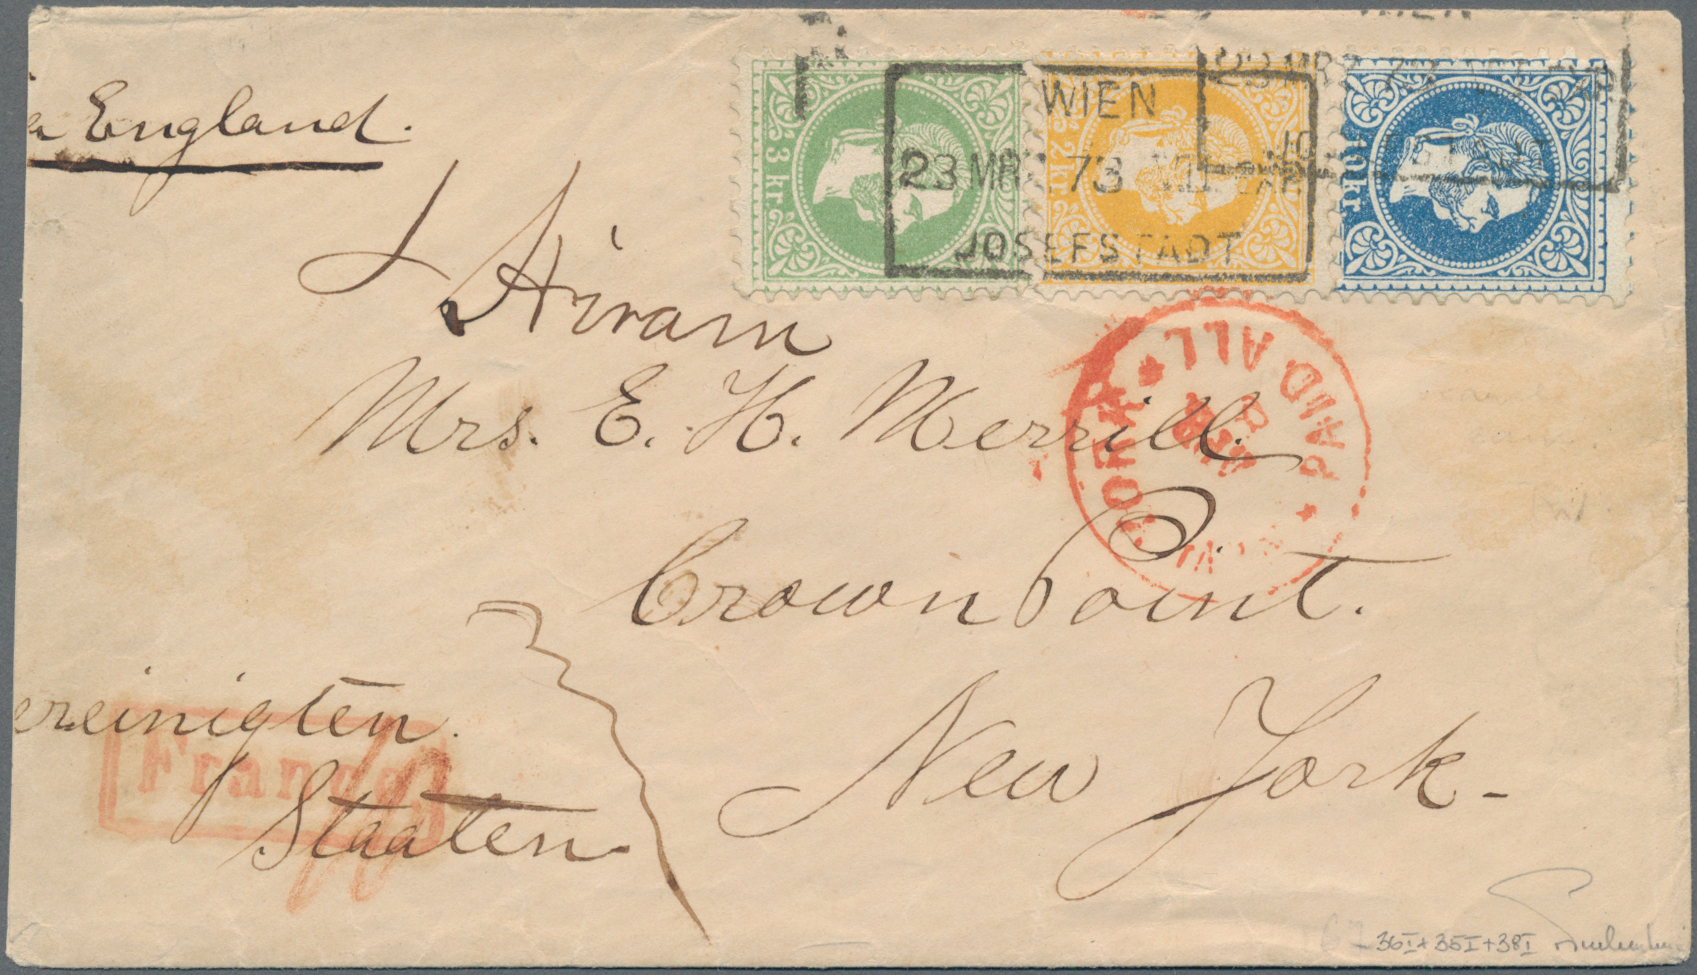 England.
3 kr
2 kr
10 kr
WIEN
23 MRZ 73
JOSEFSTADT
WIEN
Hiram
Mrs. E. H. Merrill.
Crown Point.
New York.
YORK
PAID ALL
ereinigten
Staaten.
Franco
36I+35I+38I